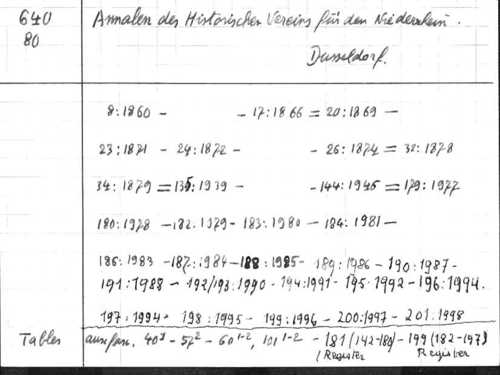 640 Annalen des Historischen Vereins für den Niederrhein.
80
Dusseldorf.
8:1860 - - 17:1866 = 20:1869 -
23:1871 - 24:1872 - - 26:1874 = 32:1878
34:1879 = 135:1939 - -144:1945 = 179:1977
180:1978 - 182:1979 - 183:1980 - 184:1981 -
186:1983 - 187:1984 - 188:1985 - 189:1986 - 190:1987 -
191:1988 - 192/193:1990 - 194:1991 - 195:1992 - 196:1994.
197:1994 - 198:1995 - 199:1996 - 200:1997 - 201:1998
Tables 40³ - 57² - 60¹⁻², 101¹⁻² - 181 (142-180) - 199 (182-197)
/Register Register